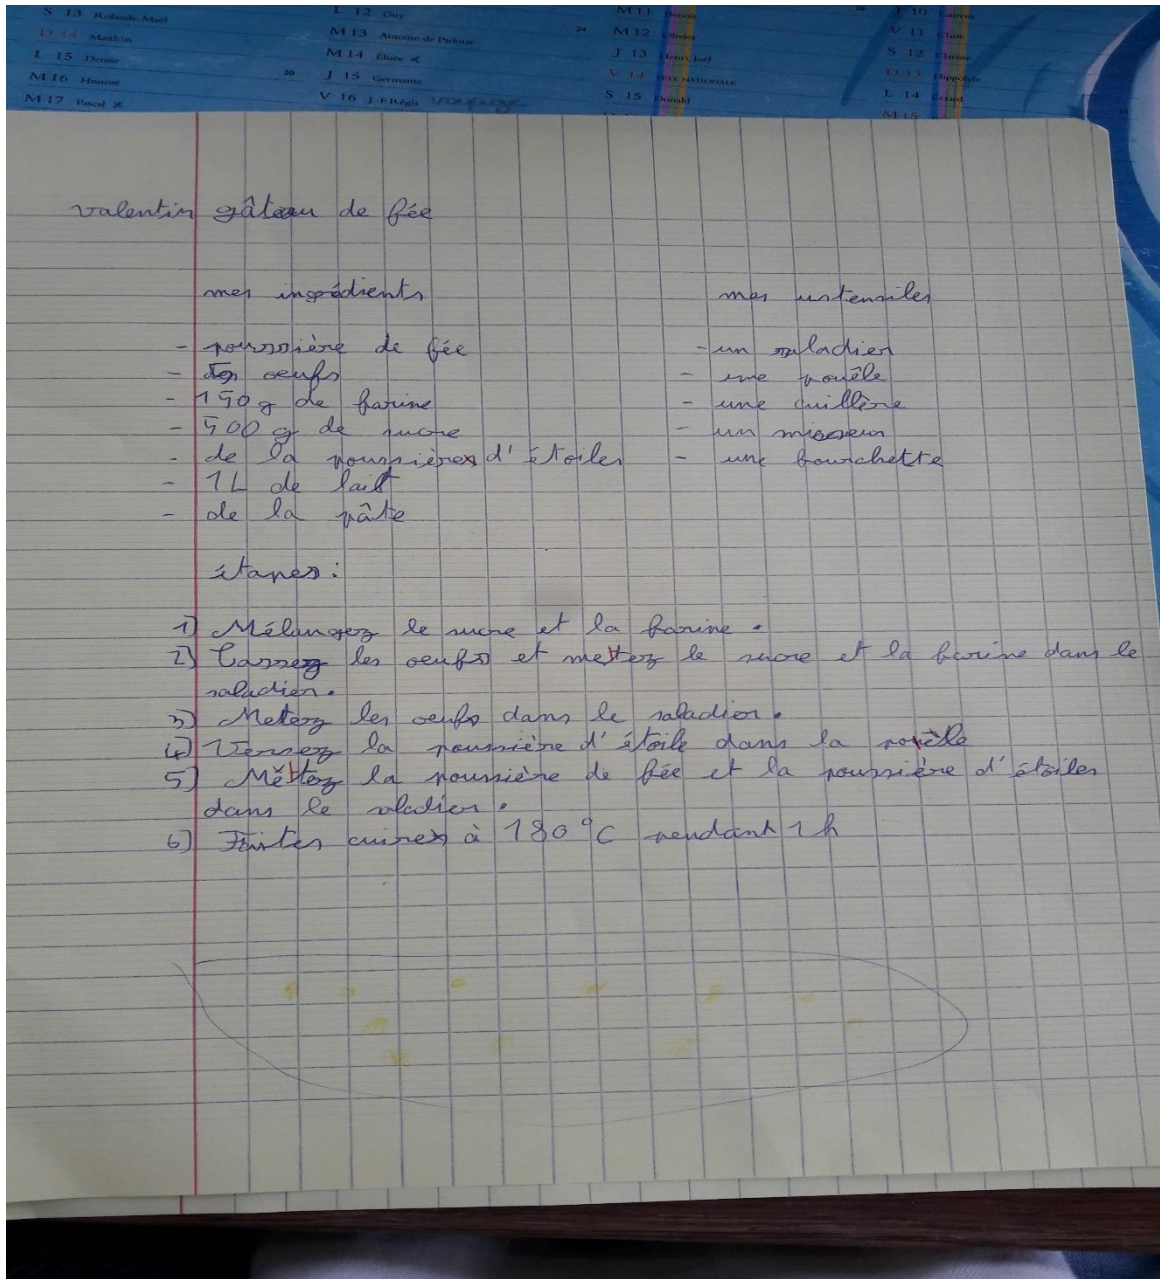 S 13 Rolande, Maël
D 14 Matthias
L 15 Denise
M 16 Honoré
M 17 Pascal
20
L 12 Guy
M 13 Antoine de Padoue
M 14 Élisée
J 15 Germaine
V 16 J.-F. Régis
24
M 11 Benoît
M 12 Olivier
J 13 Henri, Joël
V 14 FÊTE NATIONALE
S 15 Donald
J 10 Laurent
V 11 Claire
S 12 Clarisse
D 13 Hippolyte
L 14 Evrard
M 15
valentin gâteau de fée
mes ingrédients
- poussière de fée
- des oeufs
- 150 g de farine
- 500 g de sucre
- de la poussière d'étoiles
- 1L de lait
- de la pâte
mes ustensiles
- un saladier
- une pouêle
- une cuillère
- un mixeur
- une fourchette
étapes :
1) Mélangez le sucre et la farine.
2) Cassez les oeufs et mettez le sucre et la farine dans le
saladier.
3) Metez les oeufs dans le saladier.
4) Versez la poussière d'étoile dans la poêle
5) Mettez la poussière de fée et la poussière d'étoiles
dans le saladier.
6) Faites cuire à 180°C pendant 1 h